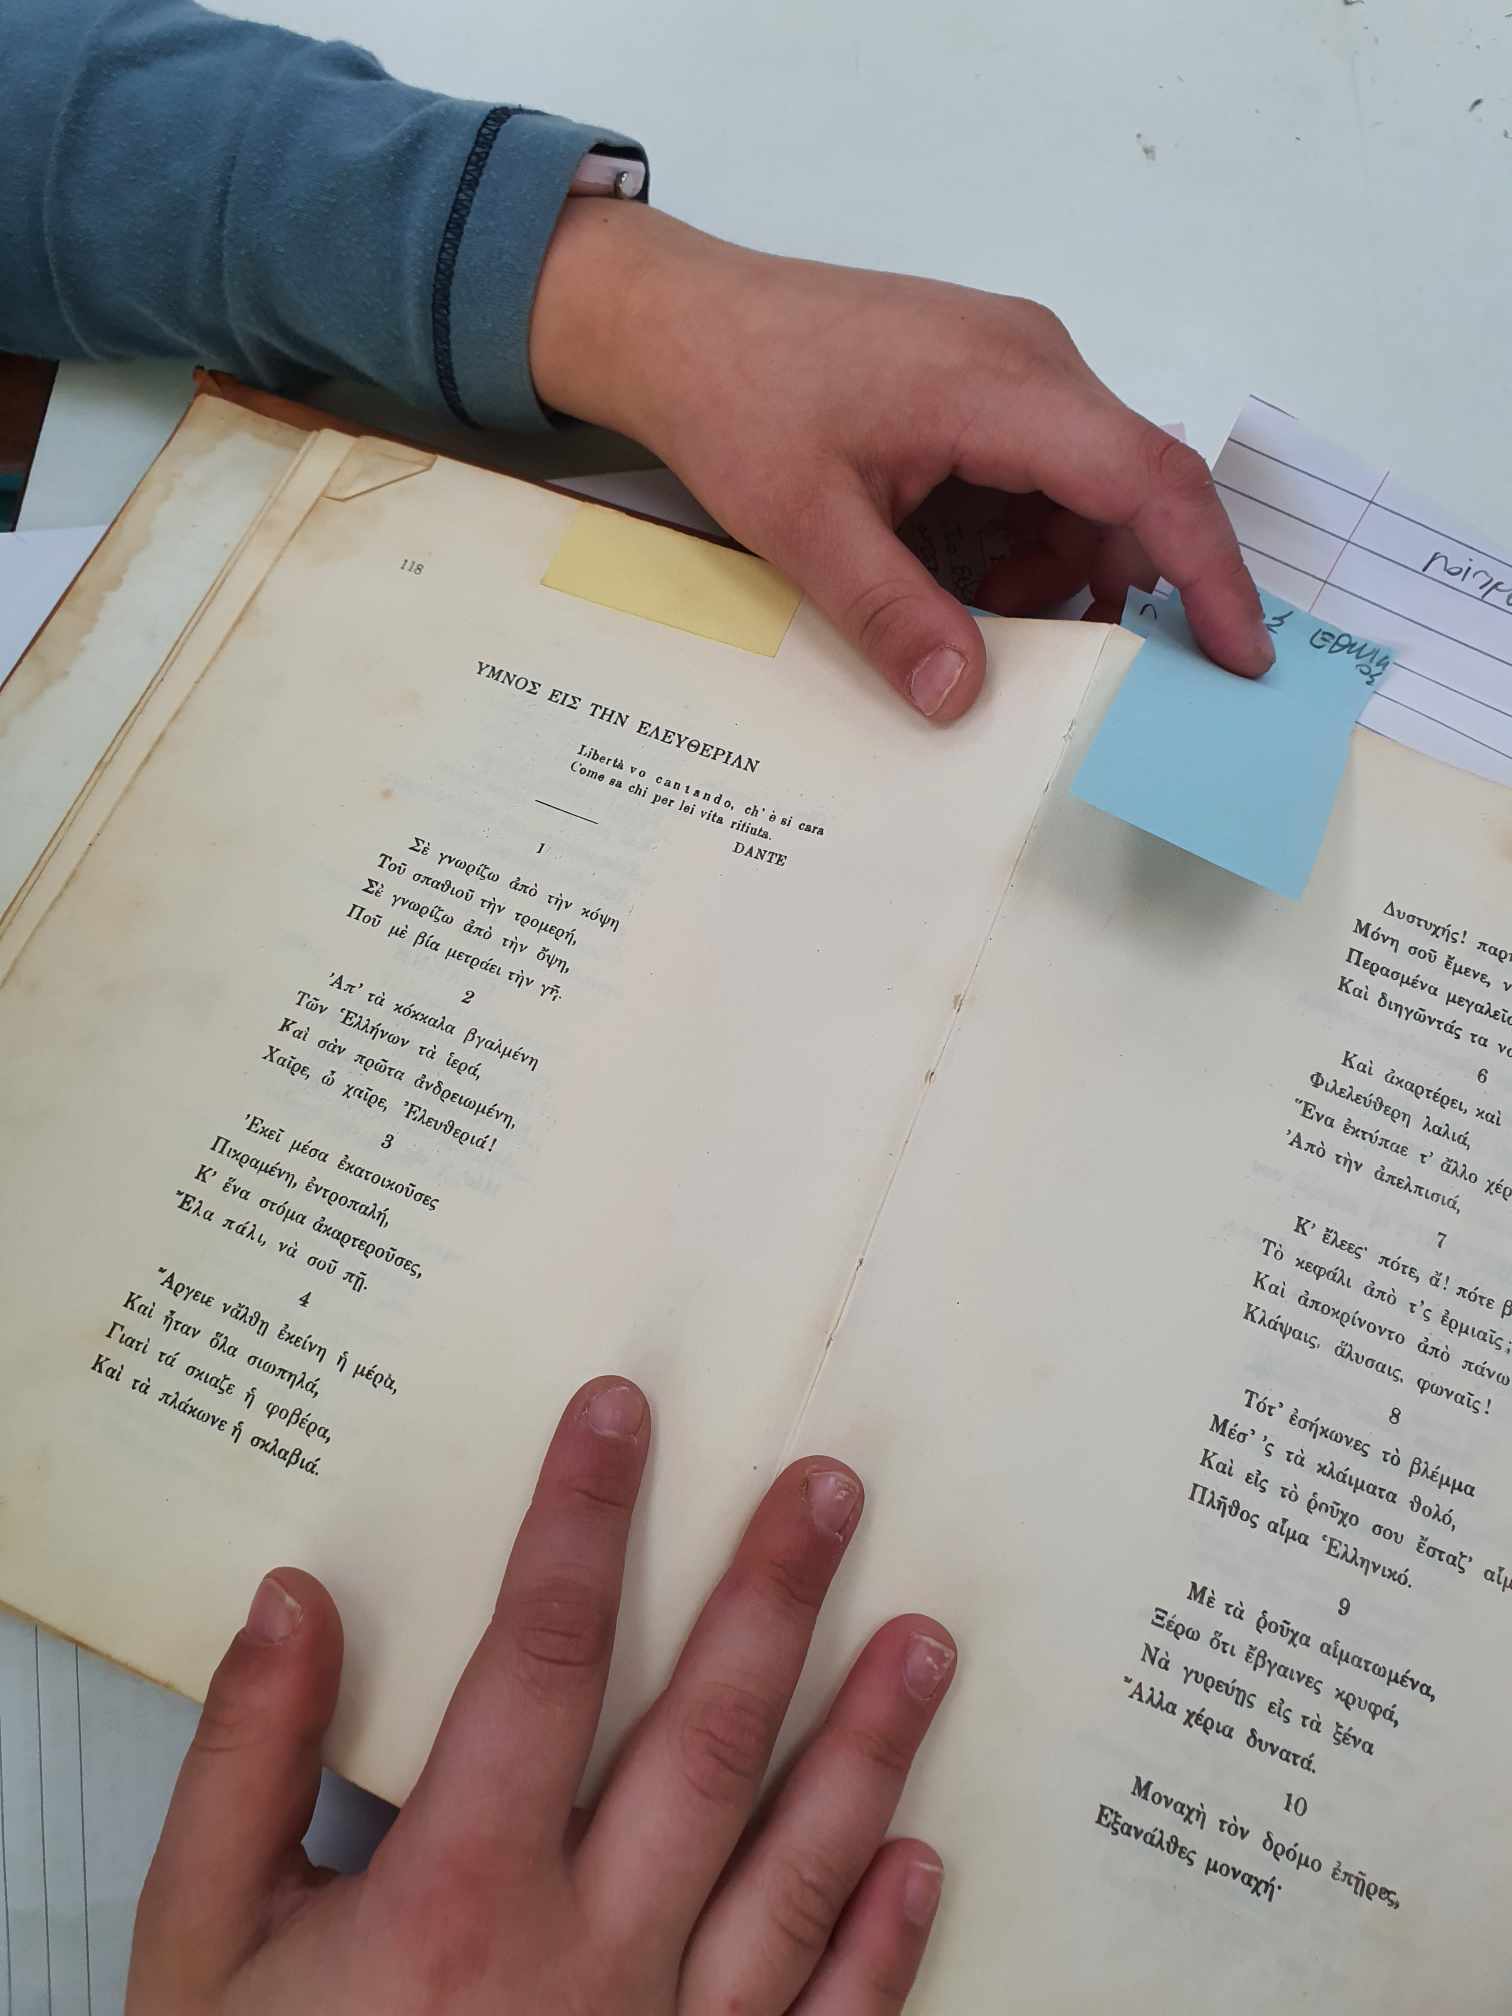 118
ΥΜΝΟΣ ΕΙΣ ΤΗΝ ΕΛΕΥΘΕΡΙΑΝ
Libertà vo cantando, ch' è si cara
Come sa chi per lei vita rifiuta.
DANTE
1
Σὲ γνωρίζω ἀπὸ τὴν κόψη
Τοῦ σπαθιοῦ τὴν τρομερή,
Σὲ γνωρίζω ἀπὸ τὴν ὄψη,
Ποῦ μὲ βία μετράει τὴν γῆ.
2
Ἀπ' τὰ κόκκαλα βγαλμένη
Τῶν Ἑλλήνων τὰ ἱερά,
Καὶ σὰν πρῶτα ἀνδρειωμένη,
Χαῖρε, ὦ χαῖρε, Ἐλευθεριά!
3
Ἐκεῖ μέσα ἐκατοικοῦσες
Πικραμένη, ἐντροπαλή,
Κ' ἕνα στόμα ἀκαρτεροῦσες,
Ἔλα πάλι, νὰ σοῦ πῇ.
4
Ἄργειε νἄλθῃ ἐκείνη ἡ μέρα,
Καὶ ἦταν ὅλα σιωπηλά,
Γιατὶ τά σκιαζε ἡ φοβέρα,
Καὶ τὰ πλάκωνε ἡ σκλαβιά.
Εθνικός
Δυστυχής!
Μόνη σοῦ ἔμενε,
Περασμένα
Καὶ διηγῶντάς τα
6
Καὶ ἀκαρτέρει, καὶ
Φιλελεύθερη λαλιά,
Ἕνα ἐκτύπαε τ' ἄλλο
Ἀπὸ τὴν ἀπελπισιά,
7
Κ' ἔλεες· πότε, ἄ! πότε
Τὸ κεφάλι ἀπὸ τ'ς ἐρμιαῖς;
Καὶ ἀποκρίνοντο ἀπὸ πάνω
Κλάψαις, ἅλυσαις, φωναῖς!
8
Τότ' ἐσήκωνες τὸ βλέμμα
Μέσ' 'ς τὰ κλάιματα θολό,
Καὶ εἰς τὸ ῥοῦχο σου ἔσταζ'
Πλῆθος αἷμα Ἑλληνικό.
9
Μὲ τὰ ῥοῦχα αἱματωμένα,
Ξέρω ὅτι ἔβγαινες κρυφά,
Νὰ γυρεύῃς εἰς τὰ ξένα
Ἄλλα χέρια δυνατά.
10
Μοναχὴ τὸν δρόμο ἐπῆρες,
Ἐξανάλθες μοναχή·